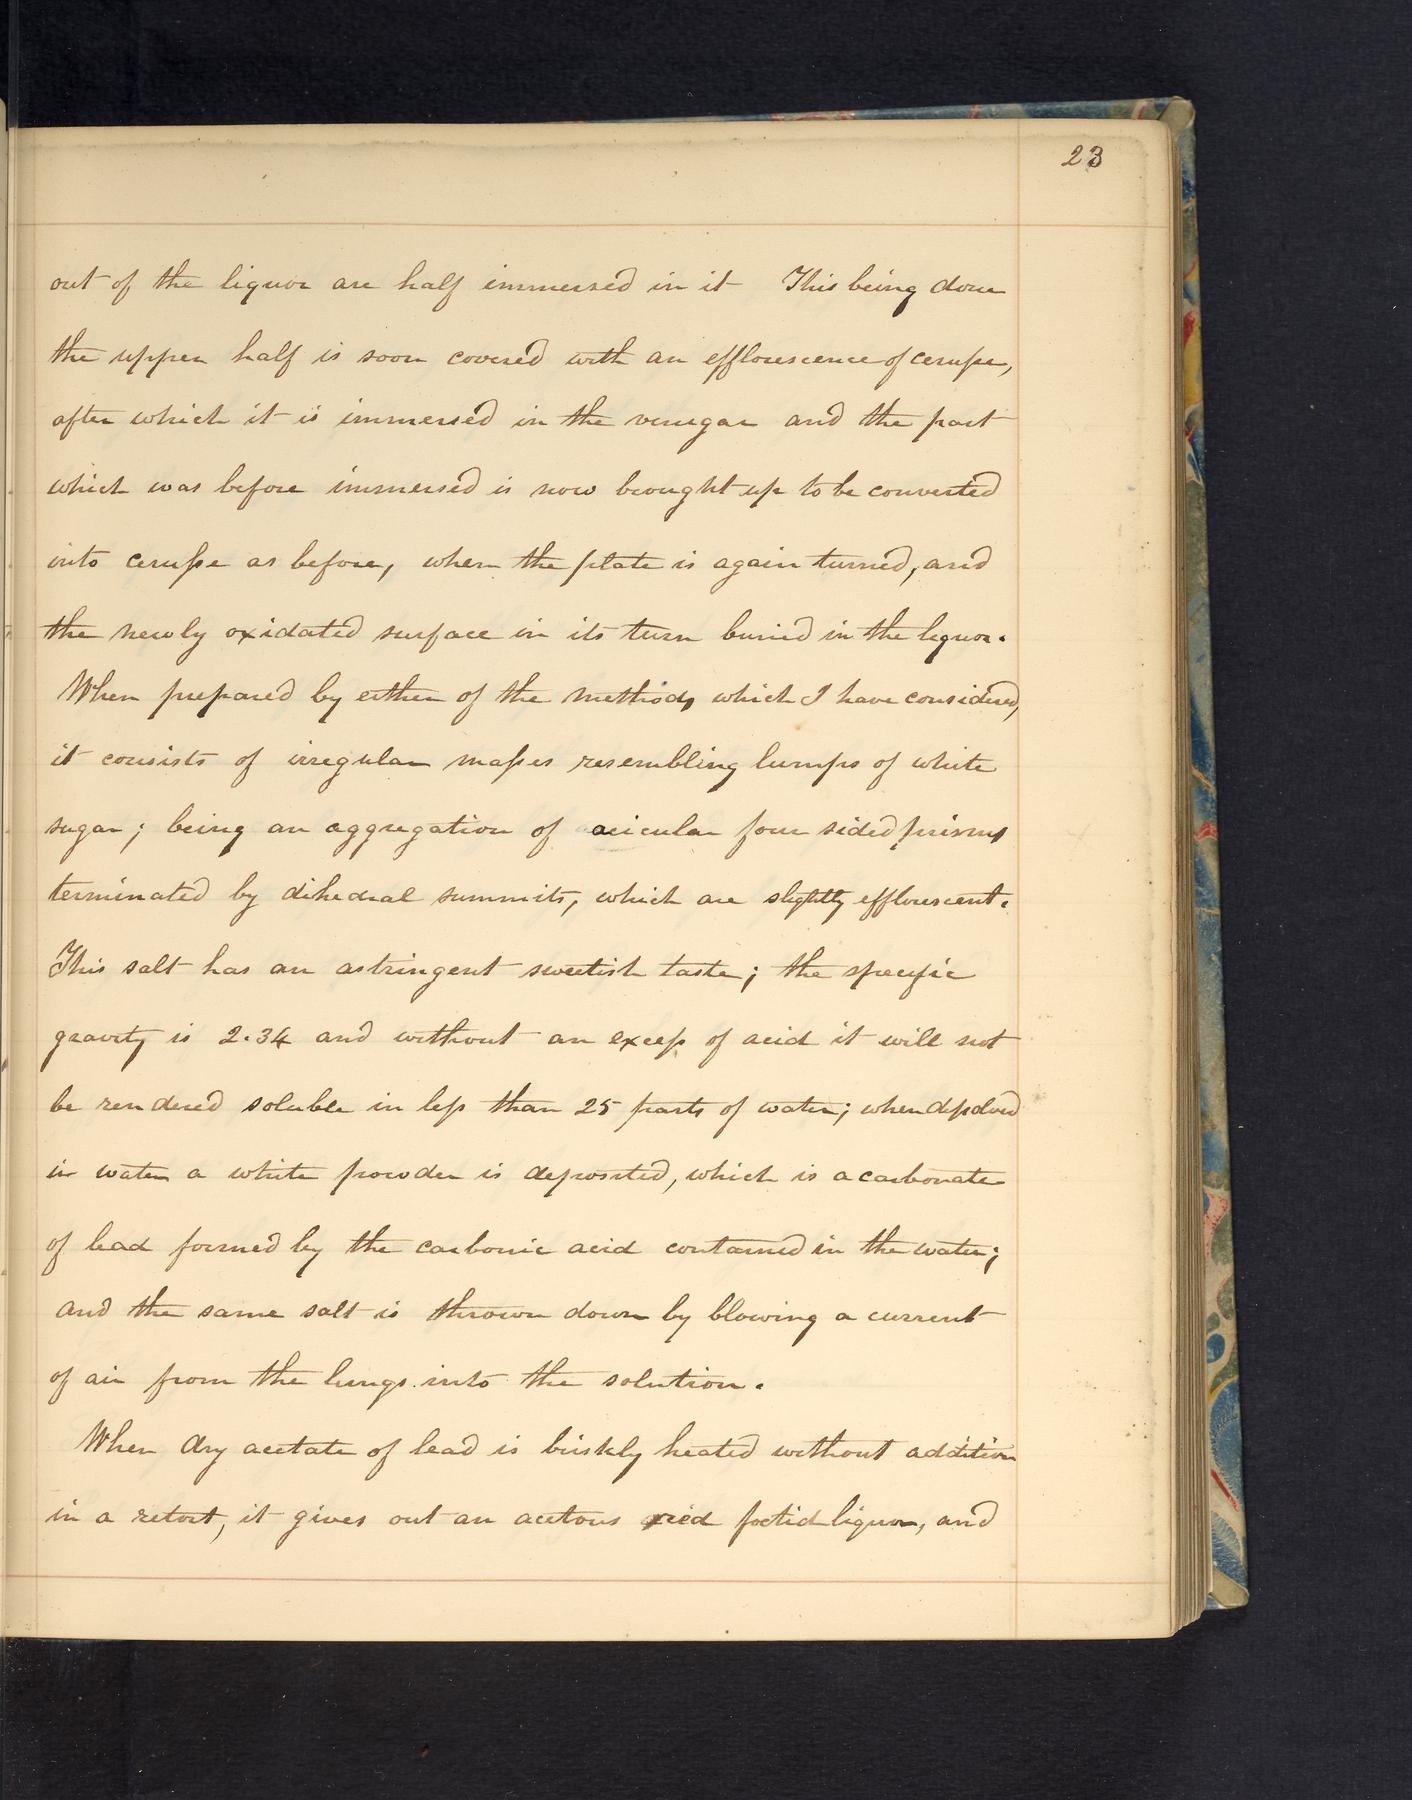 23
out of the liquor are half immersed in it This being done
the upper half is soon covered with an efflorescence of ceruſse,
after which it is immersed in the vinegar and the part
which was before immersed is now brought up to be converted
into ceruſse as before, when the plate is again turned, and
the newly oxidated surface in its turn buried in the liquor.
When prepared by either of the methods which I have considered,
it consists of irregular maſses resembling lumps of white
sugar; being an aggregation of acicular four sided prisms
terminated by dihedral summits, which are slightly efflorescent.
This salt has an astringent sweetish taste; the specific
gravity is 2.34 and without an exceſs of acid it will not
be rendered soluble in leſs than 25 parts of water; when diſsolved
in water a white powder is deposited, which is a carbonate
of lead formed by the carbonic acid contained in the water;
and the same salt is thrown down by blowing a current
of air from the lungs into the solution.
When dry acetate of lead is briskly heated without addition
in a retort, it gives out an acetous foetid liquor, and